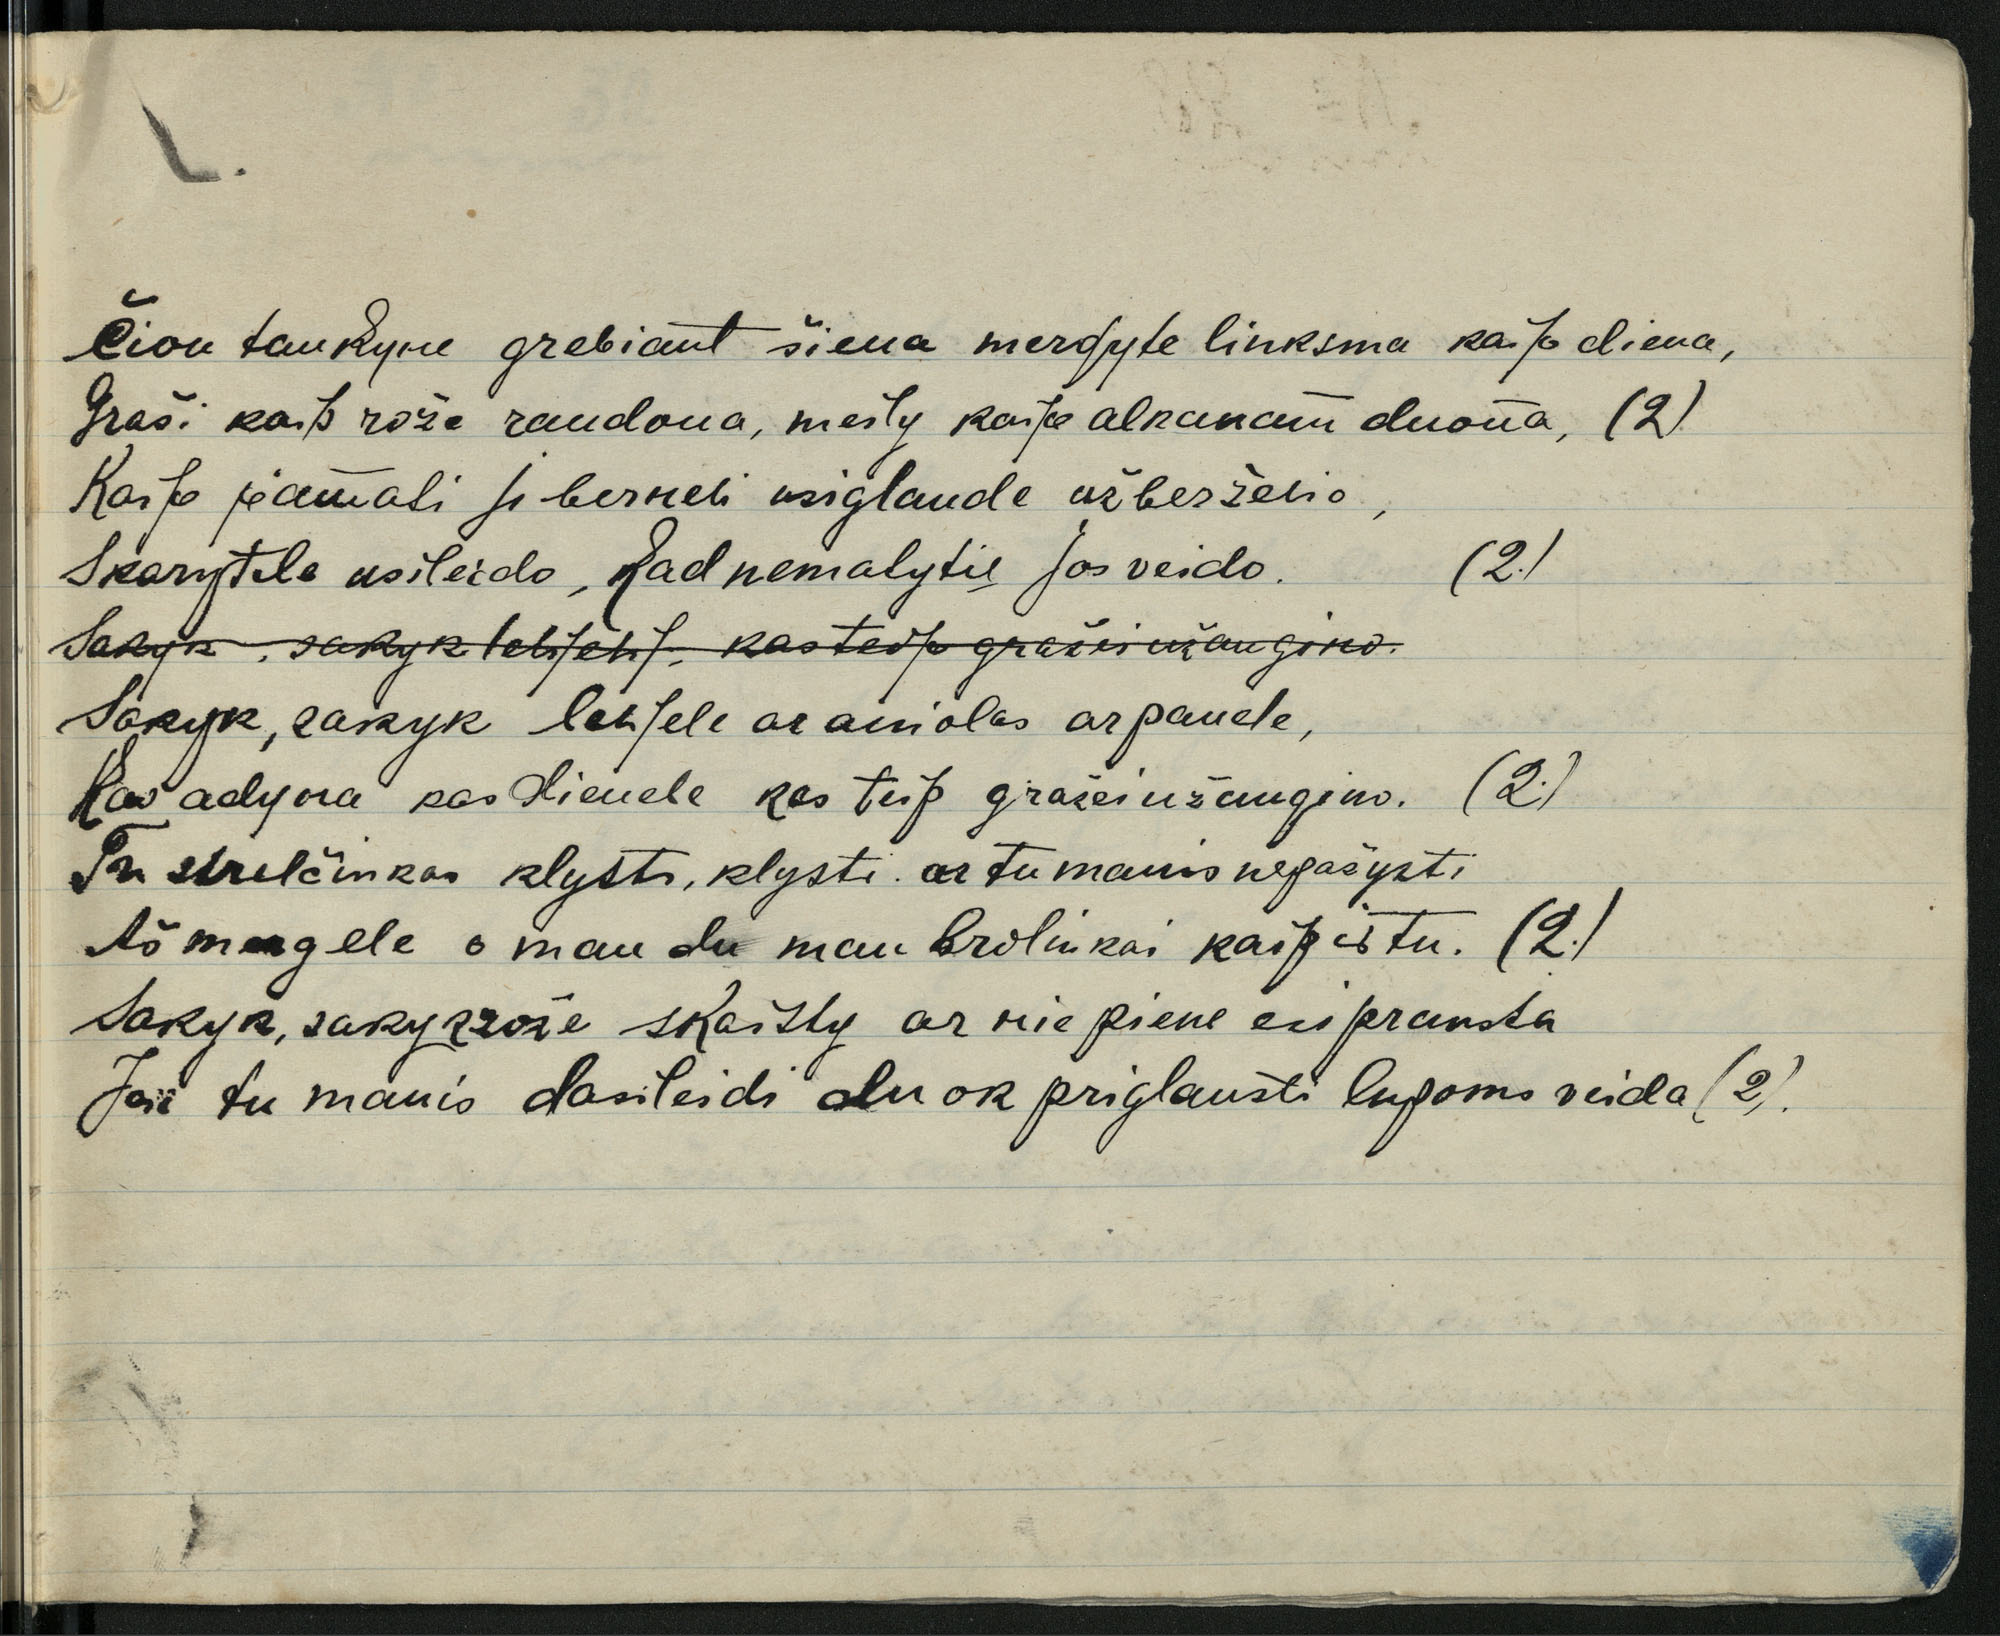 Čion tankyne grebiant šiena mergyte linksma kaip diena,
Graši kaip rože raudona, meily kaip alkanam duona, (2)
Kaip jamati ji berneli usiglaude užberželio,
Skarytele usileido, kad nematytie jos veido. (2.)
Sakyk, sakyk lelijelij, kasteip gražei užaugino.
Sakyk, sakyk lelijele ar aniolas ar panele,
Kas adyna kas dienele kas teip gražei užaugino. (2.)
Tu strelčinkas klysti, klysti. ar tu manis nepažysti
Aš mergele o man du man brolinkai kaip ir tu. (2.)
Sakyk, sakyk rože skaisty ar nie piene esi prausta
Jei tu manis dasileidi duok priglausti lupoms veida (2).